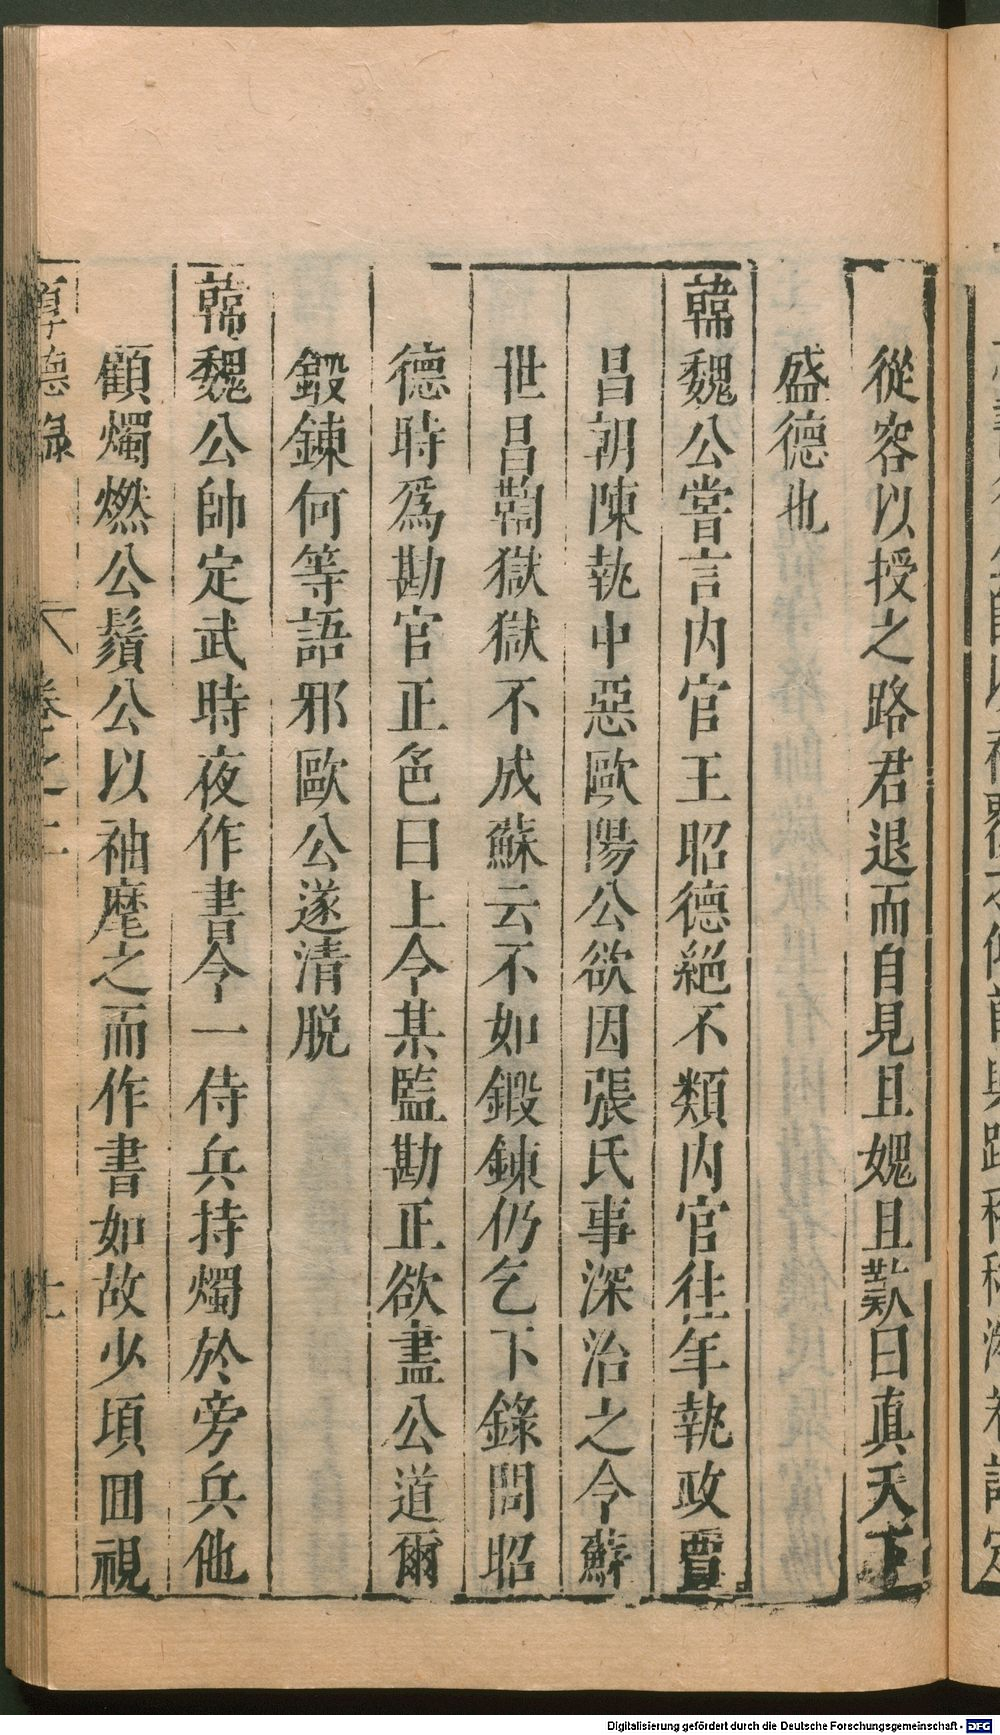 從容以授之路君退而自見且媿且歎曰真天下
盛德也
韓魏公嘗言內官王昭德絕不類內官往年執政賈
昌朝陳執中惡歐陽公欲因張氏事深治之令蘇
世昌鞫獄獄不成蘇云不如鍛鍊仍乞下錄問昭
德時爲勘官正色曰上令某監勘正欲盡公道爾
鍛鍊何等語邪歐公遂清脫
韓魏公帥定武時夜作書令一侍兵持燭於旁兵他
顧燭燃公鬚公以袖麾之而作書如故少頃囬視
厚德錄 卷之二
Digitalisierung gefördert durch die Deutsche Forschungsgemeinschaft - DFG